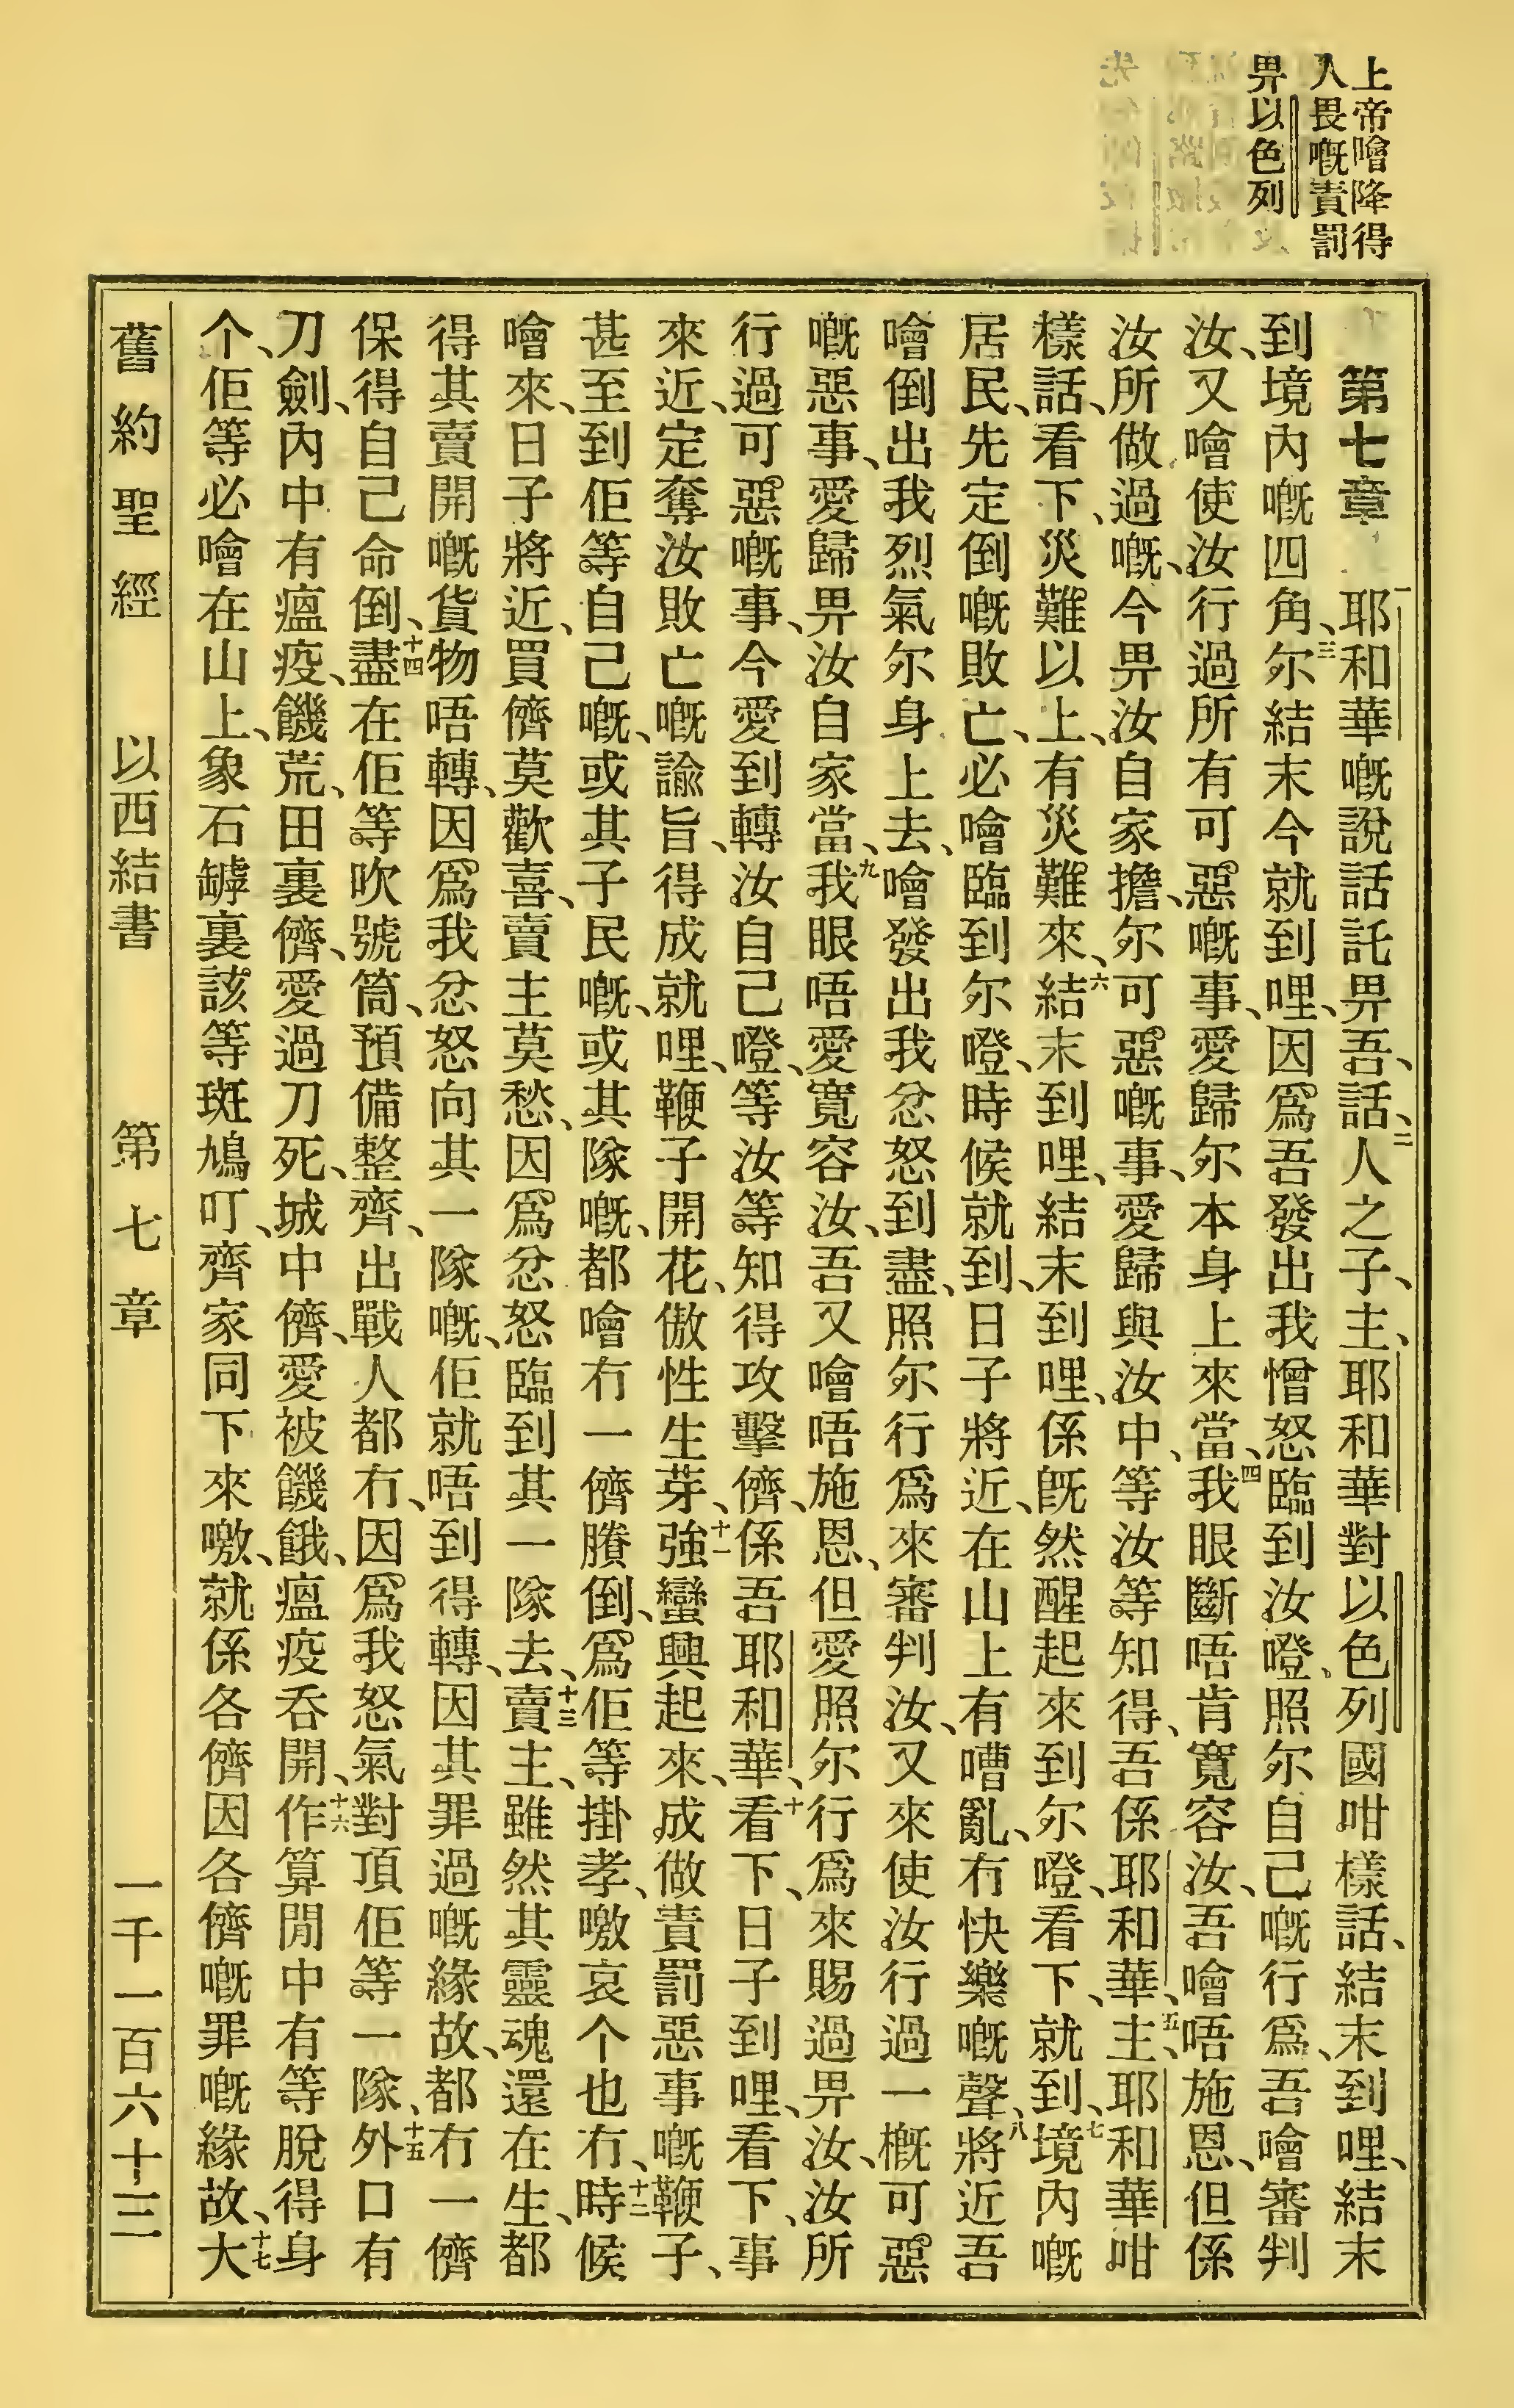 上帝噲降得
人畏嘅責罰
畀以色列
第七章　一耶和華嘅說話託畀吾、話、二人之子、主、耶和華對以色列國咁樣話、結末到哩、結末
到境內嘅四角、三尔結末今就到哩、因爲吾發出我憎怒臨到汝噔、照尔自己嘅行爲、吾噲審判
汝、又噲使汝行過所有可惡嘅事、愛歸尔本身上來當、四我眼斷唔肯寬容汝、吾噲唔施恩、但係
汝所做過嘅、今畀汝自家擔、尔可惡嘅事、愛歸與汝中、等汝等知得、吾係耶和華、五主、耶和華咁
樣話、看下、災難以上、有災難來、六結末到哩、結末到哩、係既然醒起來到尔噔、看下、就到、七境內嘅
居民、先定倒嘅敗亡、必噲臨到尔噔、時候就到、日子將近、在山上有嘈亂、冇快樂嘅聲、八將近吾
噲倒出我烈氣尔身上去、噲發出我忿怒到盡、照尔行爲來審判汝、又來使汝行過一概可惡
嘅惡事、愛歸畀汝自家當、九我眼唔愛寬容汝、吾又噲唔施恩、但愛照尔行爲來賜過畀汝、汝所
行過可惡嘅事、今愛到轉汝自己噔、等汝等知得攻擊儕、係吾耶和華、十看下、日子到哩、看下、事
來近、定奪汝敗亡嘅諭旨、得成就哩、鞭子開花、傲性生芽、十一強蠻興起來、成做責罰惡事嘅鞭子、
甚至到佢等自己嘅、或其子民嘅、或其隊嘅、都噲冇一儕賸倒、爲佢等掛孝、噭哀个也冇、十二時候
噲來、日子將近、買儕莫歡喜、賣主莫愁、因爲忿怒臨到其一隊去、十三賣主、雖然其靈魂還在生、都
得其賣開嘅貨物唔轉、因爲我忿怒向其一隊嘅、佢就唔到得轉、因其罪過嘅緣故、都冇一儕
保得自己命倒、十四盡在佢等吹號筒、預備整齊、出戰人都冇、因爲我怒氣對頂佢等一隊、十五外口有
刀劍、內中有瘟疫、饑荒、田裏儕、愛過刀死、城中儕、愛被饑餓、瘟疫吞開、十六作算閒中有等脫得身
个、佢等必噲在山上、象石罅裏該等斑鳩叮、齊家同下來噭、就係各儕因各儕嘅罪嘅緣故、十七大
舊約聖經　以西結書　第七章　一千一百六十三